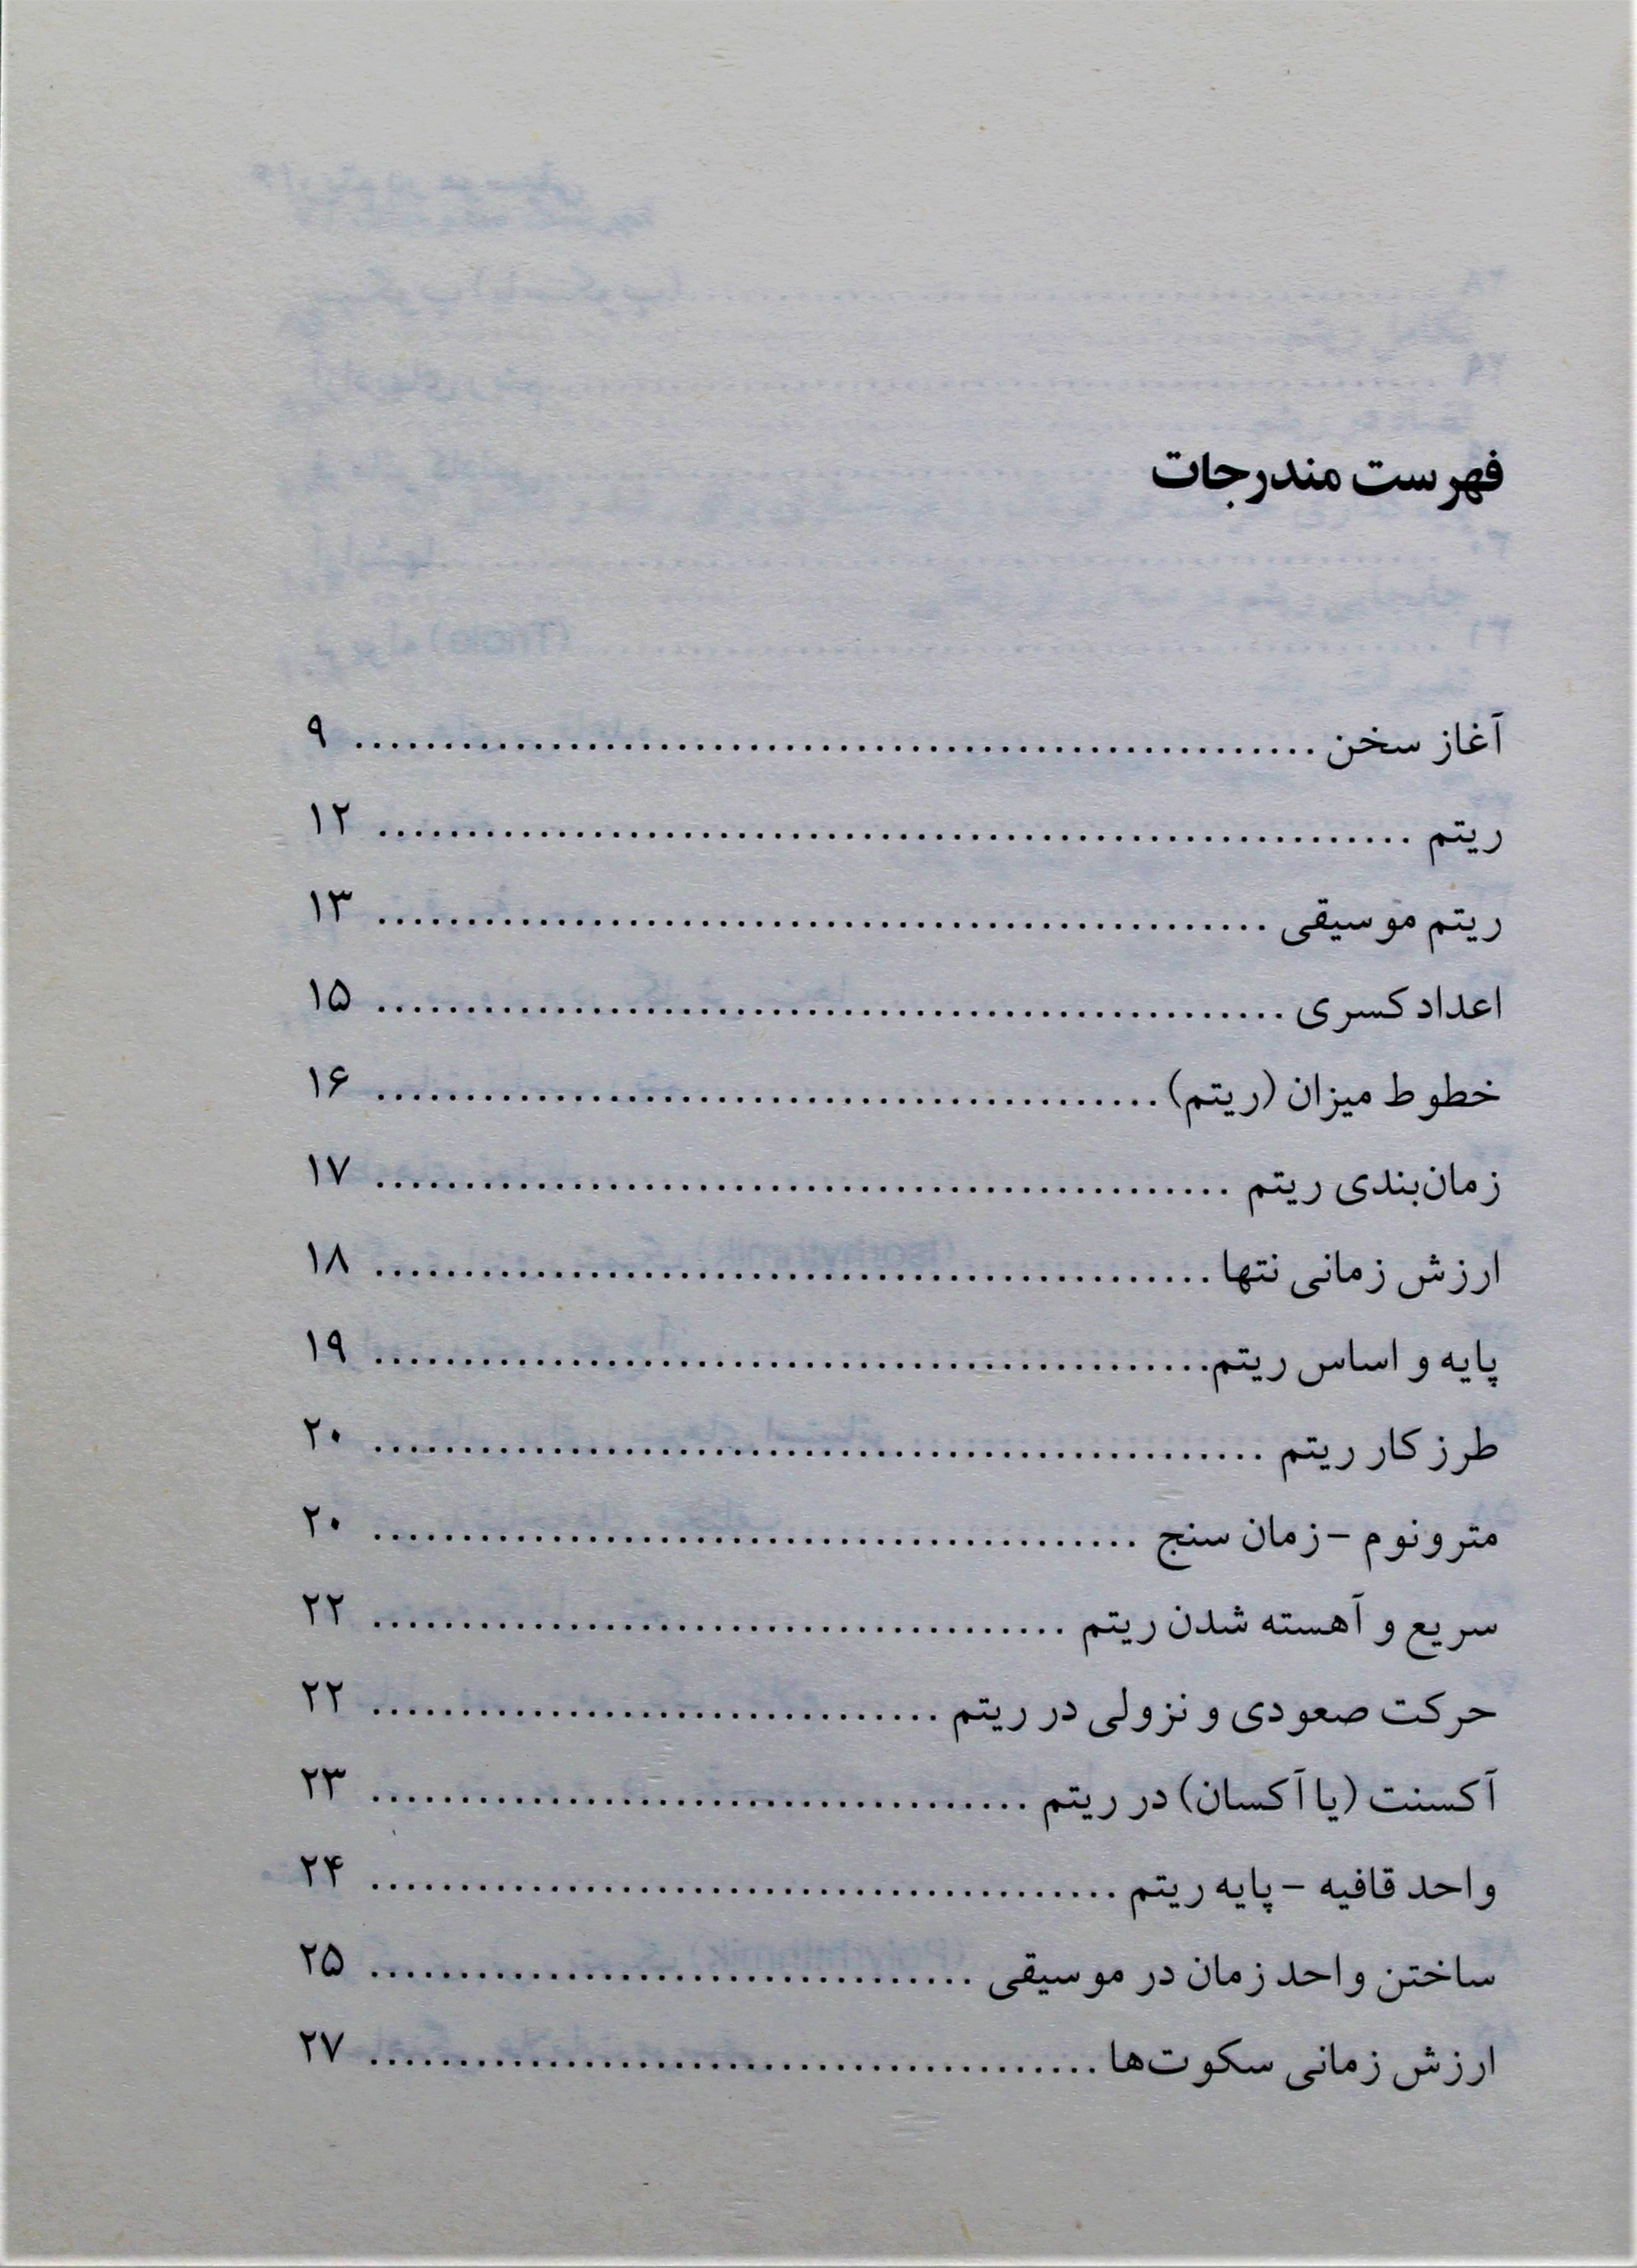 فهرست مندرجات
آغاز سخن ........................................ ۹
ریتم ........................................ ۱۲
ریتم موسیقی ........................................ ۱۳
اعداد کسری ........................................ ۱۵
خطوط میزان (ریتم) ........................................ ۱۶
زمان‌بندی ریتم ........................................ ۱۷
ارزش زمانی نتها ........................................ ۱۸
پایه و اساس ریتم ........................................ ۱۹
طرز کار ریتم ........................................ ۲۰
مترونوم – زمان سنج ........................................ ۲۰
سریع و آهسته شدن ریتم ........................................ ۲۲
حرکت صعودی و نزولی در ریتم ........................................ ۲۲
آکسنت (یا آکسان) در ریتم ........................................ ۲۳
واحد قافیه – پایه ریتم ........................................ ۲۴
ساختن واحد زمان در موسیقی ........................................ ۲۵
ارزش زمانی سکوت‌ها ........................................ ۲۷